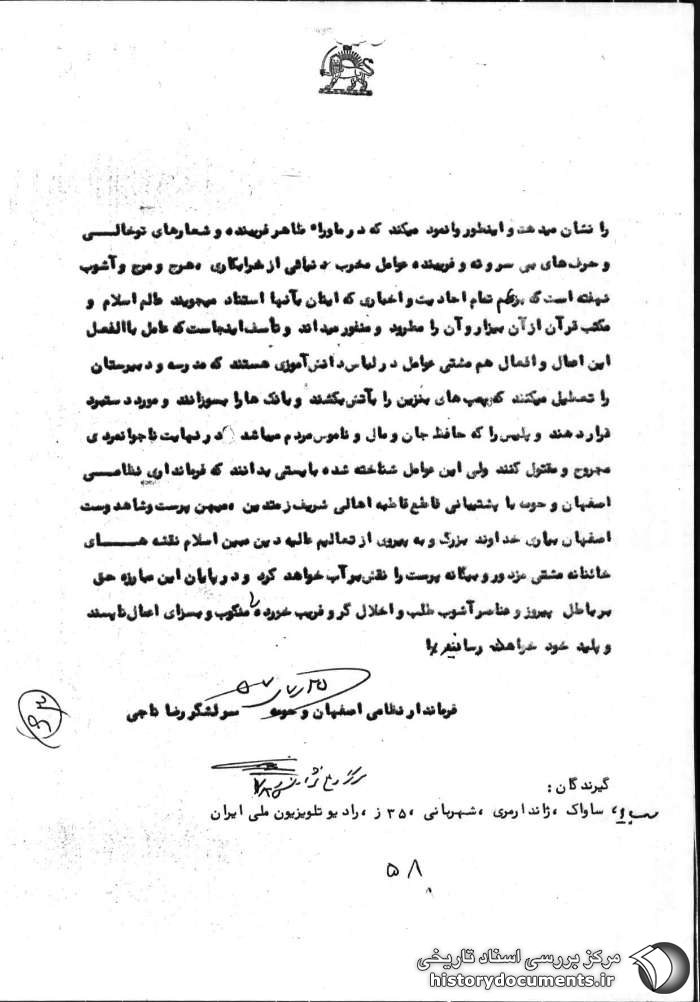 را نشان میدهد و اینطور وانمود میکند که در ماوراء ظاهر فریبنده و شعارهای توخالی
و حرف‌های بی سر و ته و فریبنده عوامل مخرب دنیائی از خرابکاری ، هرج و مرج و آشوب
نهفته است که بزعم تمام احادیث و اخباری که اینان بآنها استناد میجویند عالم اسلام و
مکتب قرآن از آن بیزار و آن را مطرود و منفور میداند و تأسف اینجاست که عامل بالفعل
این اعمال و افعال هم مشتی عوامل در لباس دانش‌آموزی هستند که مدرسه و دبیرستان
را تعطیل میکنند که پمپ های بنزین را بآتش بکشند و بانک ها را بسوزانند و مورد دستبرد
قرار دهند و پلیس را که حافظ جان و مال و ناموس مردم میباشد در نهایت ناجوانمردی
مجروح و مقتول کنند ولی این عوامل شناخته شده بایستی بدانند که فرمانداری نظامی
اصفهان و حومه با پشتیبانی قاطع قاطبه اهالی شریف ، متدین ، میهن پرست و شاهدوست
اصفهان بیاری خداوند بزرگ و به پیروی از تعالیم عالیه دین مبین اسلام نقشه های
خائنانه مشتی مزدور و بیگانه پرست را نقش بر آب خواهد کرد و در پایان این مبارزه حق
بر باطل پیروز و عناصر آشوب طلب و اخلال گر و فریب خورده را منکوب و بسزای اعمال ناپسند
و پلید خود خواهند رسانید
فرماندار نظامی اصفهان و حومه سرلشگر رضا ناجی
گیرندگان :
ساواک ، ژاندارمری ، شهربانی ، ۳۵ ز ، رادیو تلویزیون ملی ایران
۵۸
مرکز بررسی اسناد تاریخی
historydocuments.ir